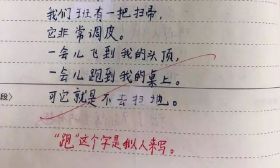 我们班有一把扫帚，
它非常调皮。
一会儿飞到我的头顶，
一会儿跑到我的桌上。
段）
可它就是不去扫地。
“跑”这个字是拟人来写。